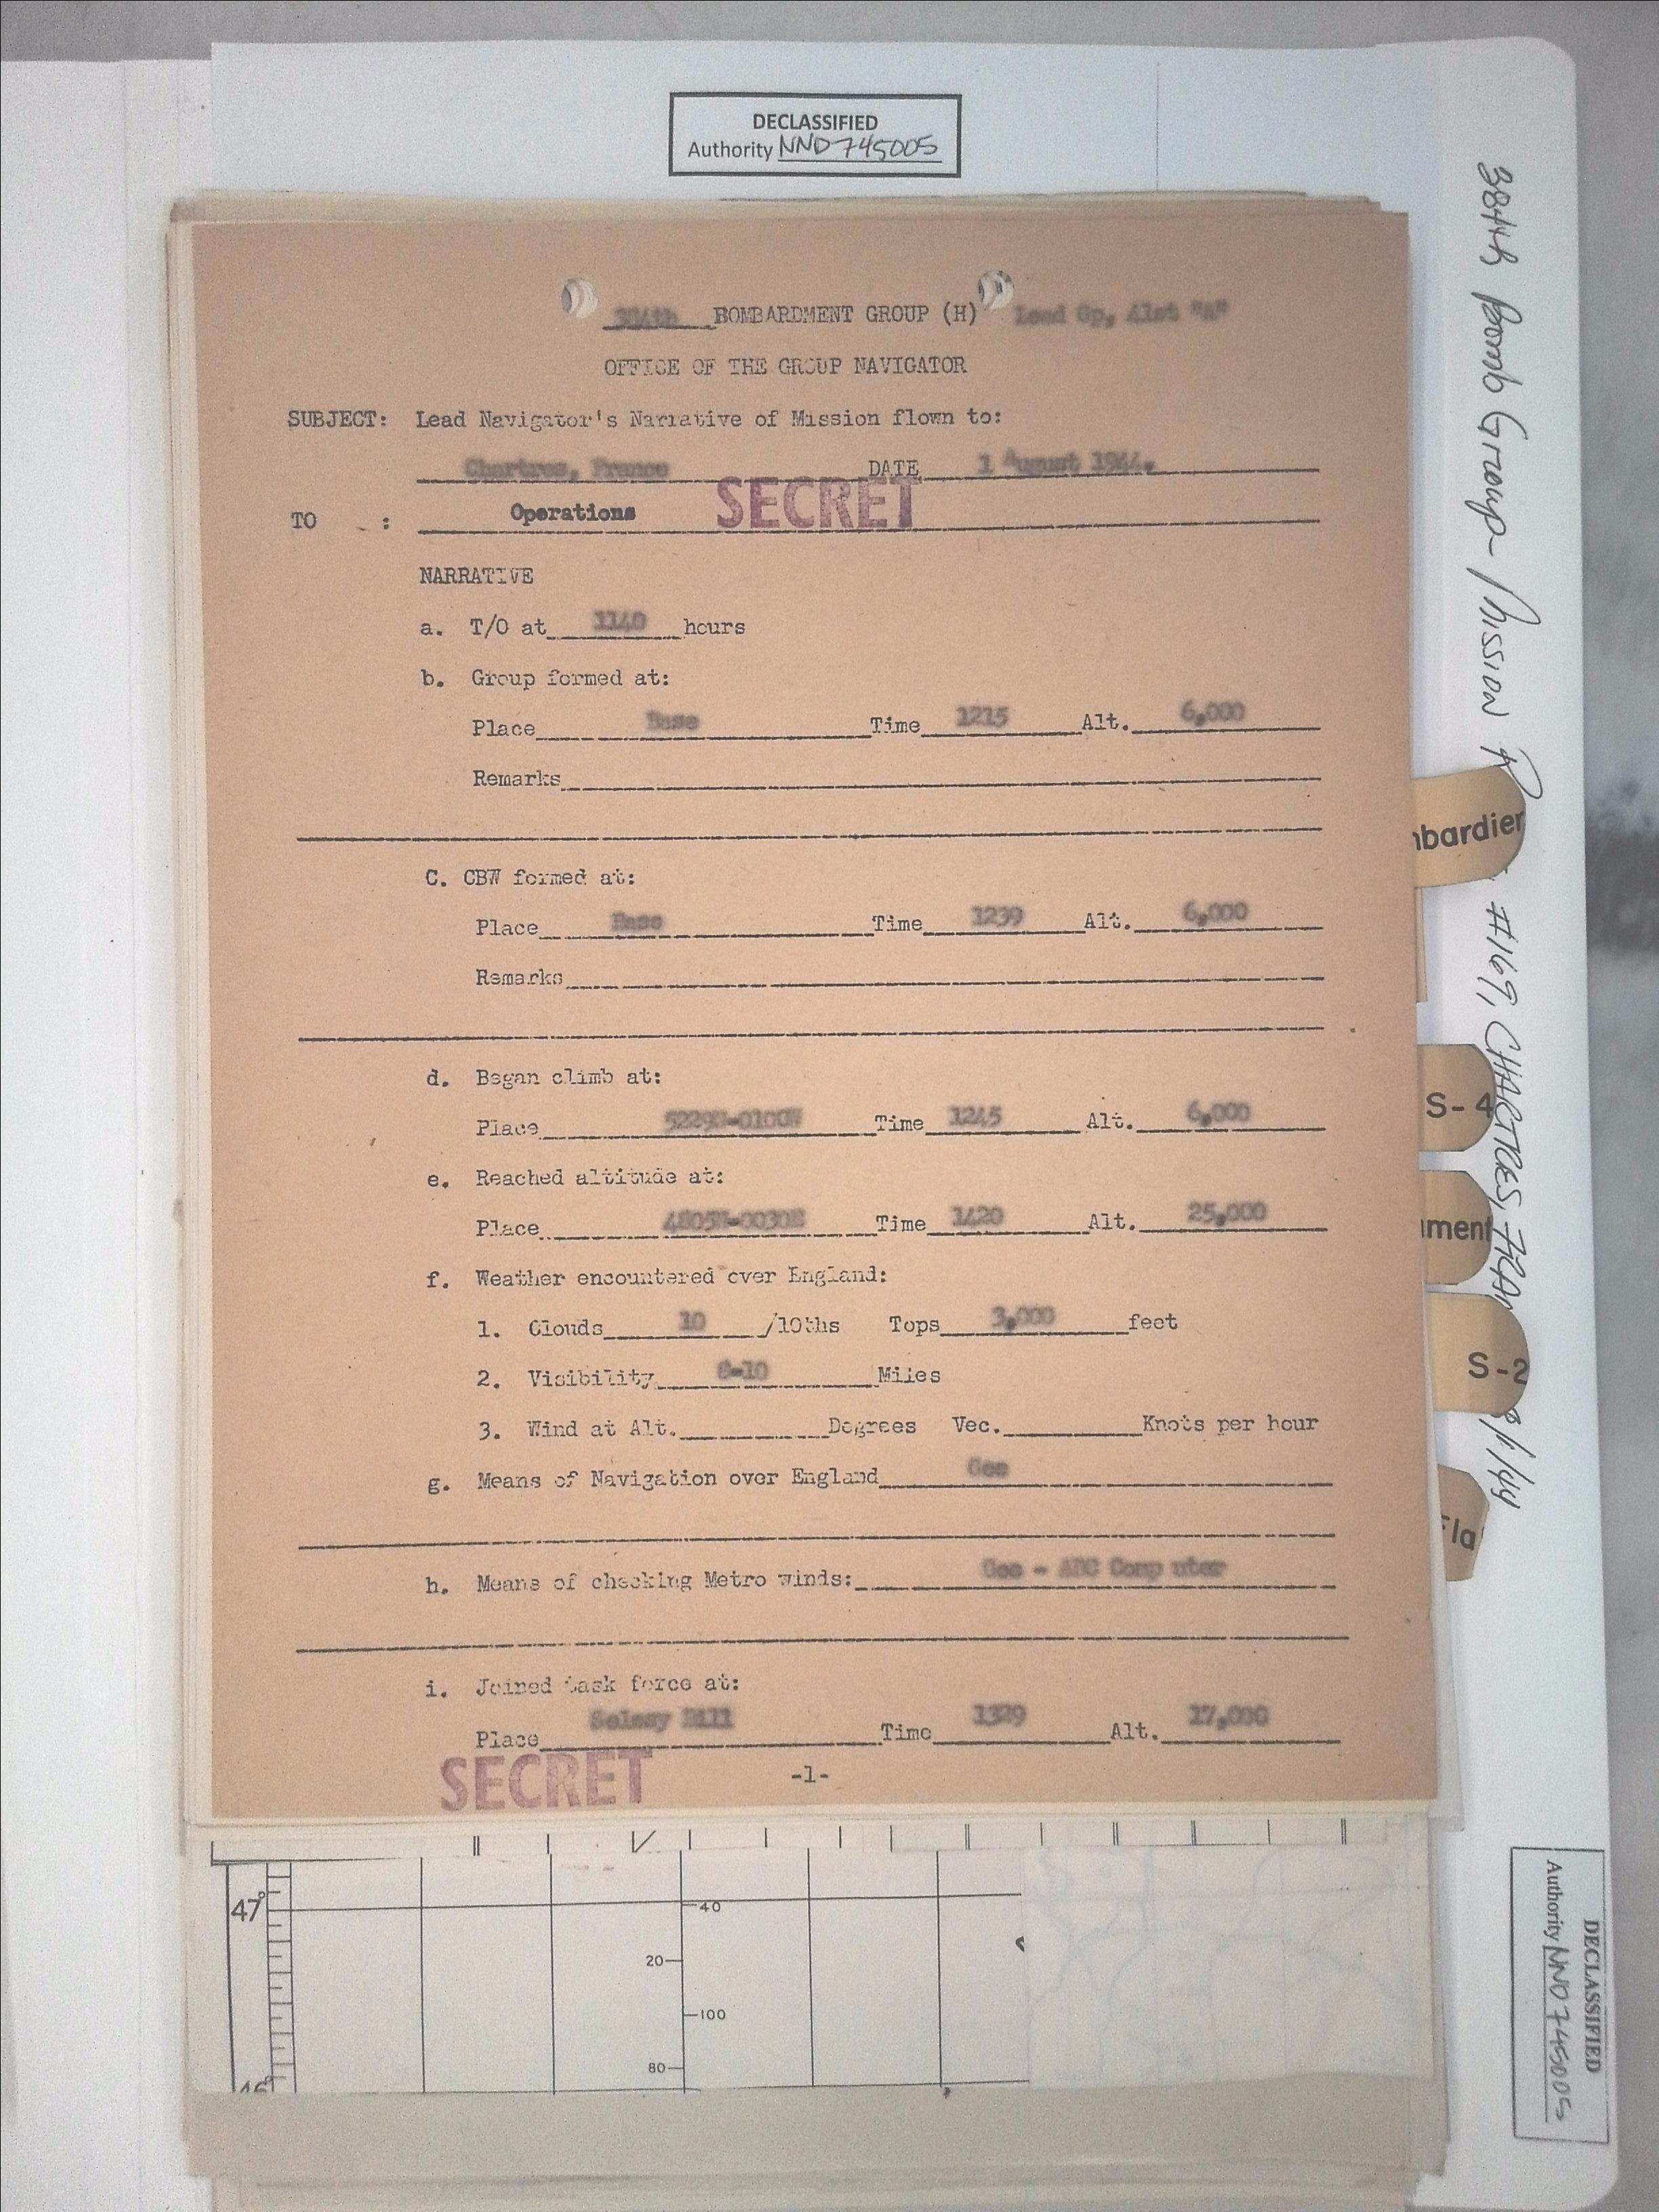 DECLASSIFIED
Authority NND 745005
384th BOMBARDMENT GROUP (H) Lead Gp, 41st "A"
OFFICE OF THE GROUP NAVIGATOR
SUBJECT: Lead Navigator's Narrative of Mission flown to:
Chartres, France DATE 1 August 1944.
SECRET
TO : Operations
NARRATIVE
a. T/O at 1140 hours
b. Group formed at:
Place Base Time 1215 Alt. 6,000
Remarks
C. CBW formed at:
Place Base Time 1239 Alt. 6,000
Remarks
d. Began climb at:
Place 5229N-0100W Time 1245 Alt. 6,000
e. Reached altitude at:
Place 4805N-0030E Time 1420 Alt. 25,000
f. Weather encountered over England:
1. Clouds 10 /10ths Tops 3,000 feet
2. Visibility 8-10 Miles
3. Wind at Alt. Degrees Vec. Knots per hour
g. Means of Navigation over England Gee
h. Means of checking Metro winds: Gee - ABC Comp uter
i. Joined task force at:
Place Selsey Bill Time 1329 Alt. 17,000
SECRET
-1-
47°
46°
40
20
100
80
384th Bomb Group - Mission # 169, CHARTRES, 8/1/44
mbardier
S-4
ment
S-2
Fla
DECLASSIFIED
Authority NND 745005